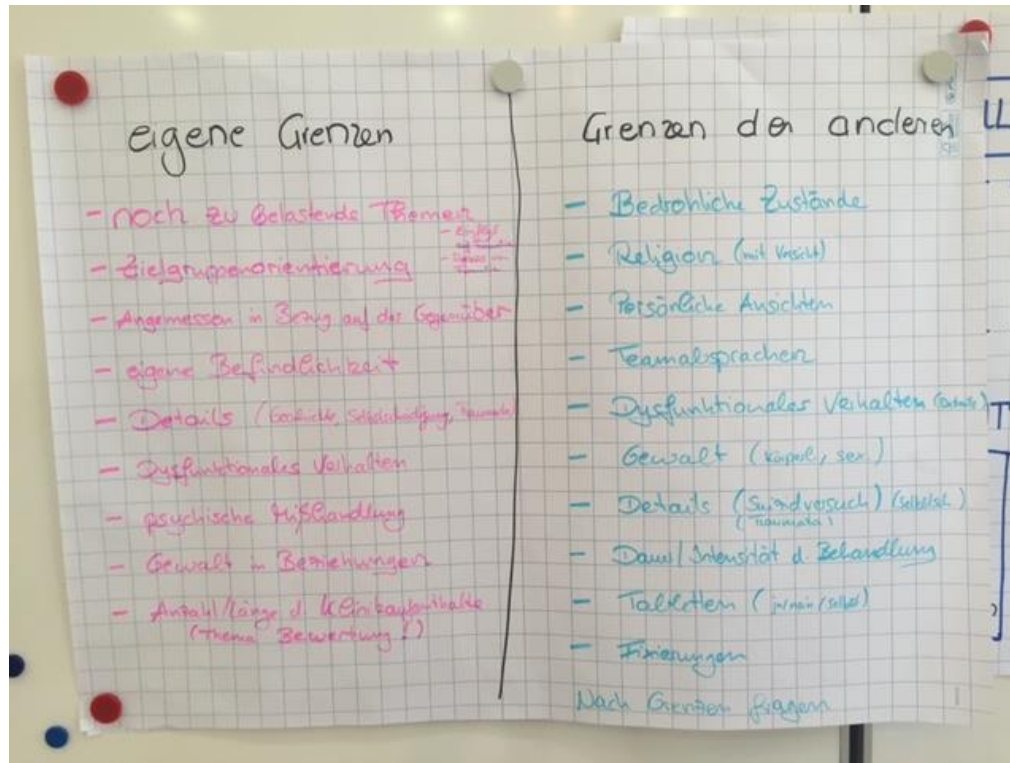 eigene Grenzen
- noch zu belastende Themen
- Zielgruppenorientierung
- Angemessen in Bezug auf das Gegenüber
- eigene Befindlichkeit
- Details (
- Dysfunktionales Verhalten
- psychische Mißhandlung
- Gewalt in Beziehungen
- Anzahl/Länge d. Klinikaufenthalte
(Thema Bewertung!)
Grenzen der anderen
- Bedrohliche Zustände
- Religion (mit Vorsicht)
- Persönliche Ansichten
- Teamabsprachen
- Dysfunktionales Verhalten
- Gewalt (körperl, sex.)
- Details (Suizidversuch)
(Traumata)
- Dauer/Intensität d. Behandlung
- Toiletten
- Fixierungen
Nach Grenzen fragen